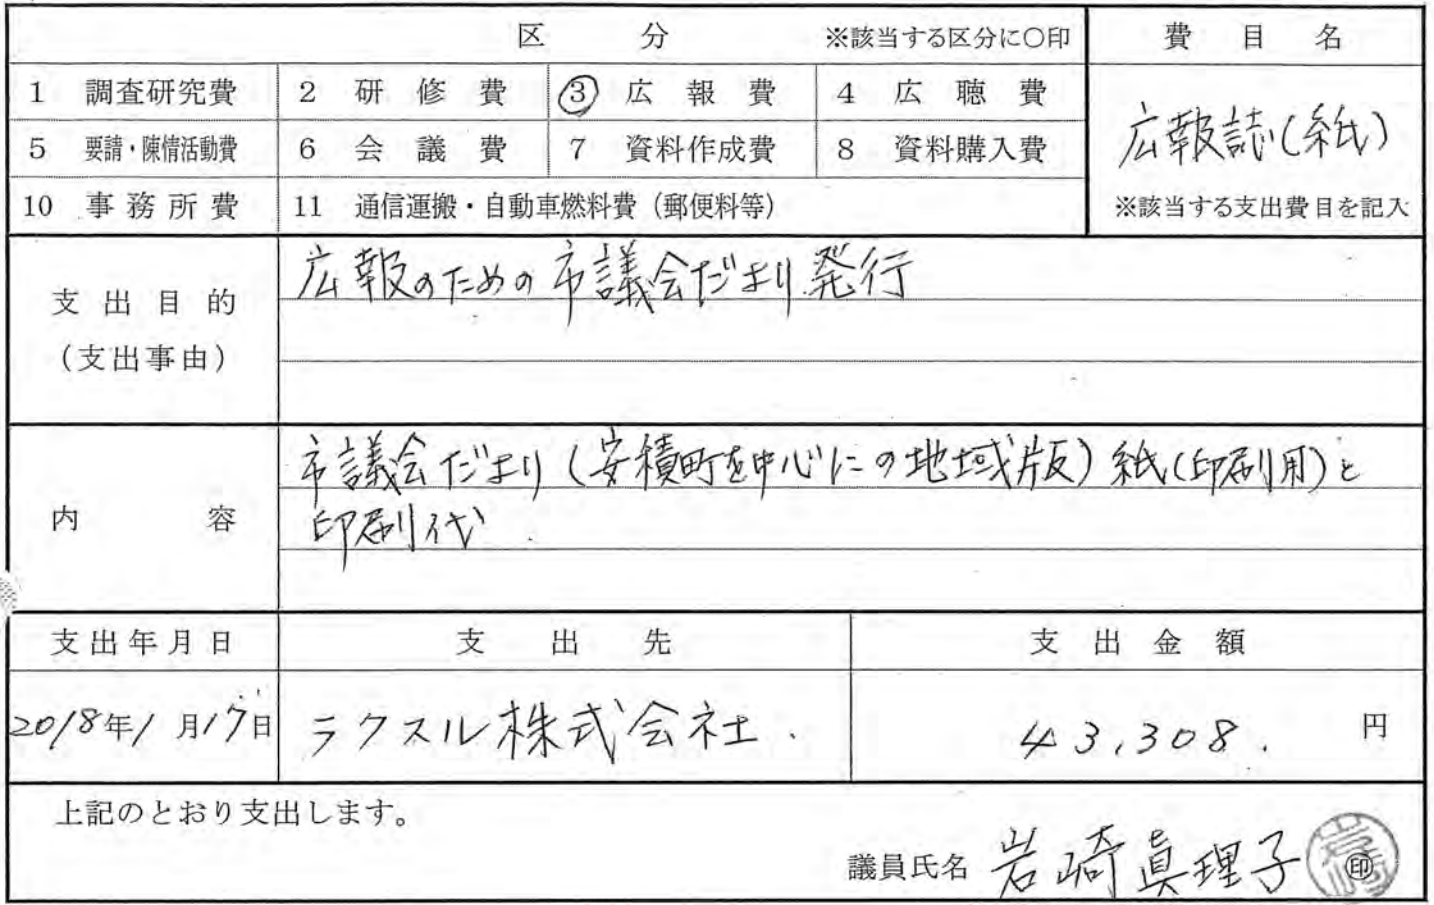 区 分 ※該当する区分に○印 費目名
1 調査研究費 2 研修費 ③ 広報費 4 広聴費
広報誌(紙)
5 要請・陳情活動費 6 会議費 7 資料作成費 8 資料購入費
10 事務所費 11 通信運搬・自動車燃料費（郵便料等） ※該当する支出費目を記入
支出目的
(支出事由)
広報のための市議会だより発行
内容
市議会だより(安積町を中心にの地域版)紙(印刷用)と
印刷代
支出年月日 支出先 支出金額
2018年1月17日 ラクスル株式会社. 43,308. 円
上記のとおり支出します。
議員氏名 岩崎真理子 ㊞
岩崎